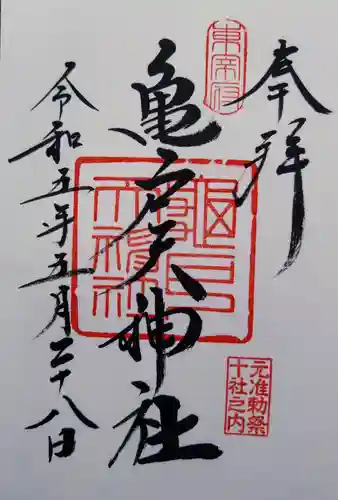 奉拝
東宰府
亀戸天神社
元准勅祭
十社之内
令和五年五月二十八日